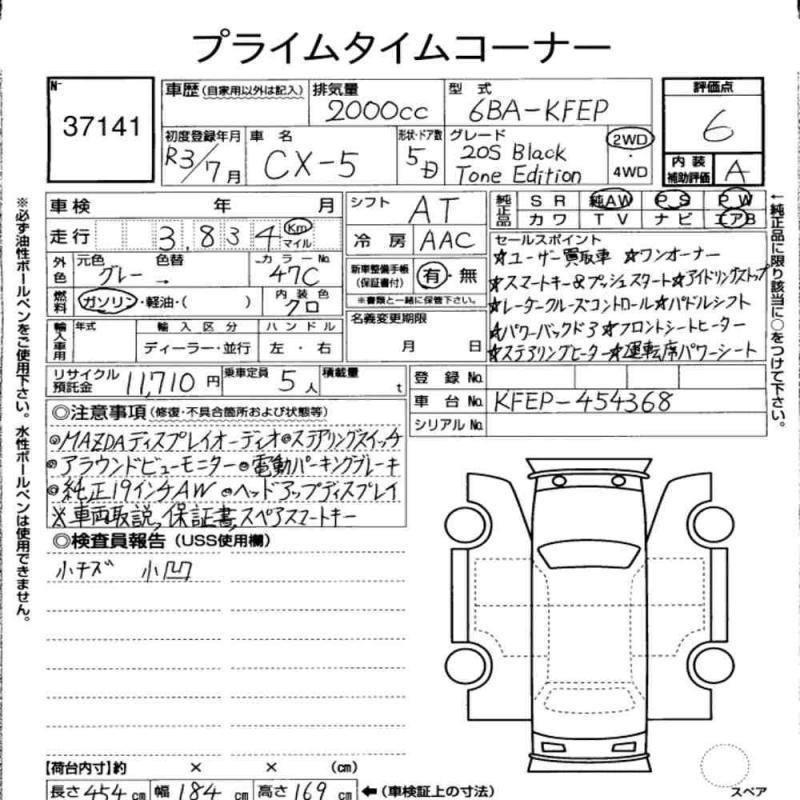 プライムタイムコーナー
N-
37141
車歴 (自家用以外は記入)
排気量
2000cc
型 式
6BA-KFEP
評価点
6
初度登録年月
R3/7月
車 名
CX-5
形状・ドア数
5D
グレード
20S Black
Tone Edition
2WD
・
4WD
内 装
補助評価
A
※必ず油性ボールペンをご使用下さい。水性ボールペンは使用できません。
車検 年 月
走行 3.834 Km
マイル
外色
元色 色替
グレー →
カラーNo.
47C
燃料
ガソリン・軽油・( )
内 装 色
クロ
輸入車用
年式
輸 入 区 分
ディーラー・並行
ハ ン ド ル
左 ・ 右
シフト
AT
冷 房
AAC
新車整備手帳
(保証書付)
有・無
※書類と一緒に保管下さい。
名義変更期限
月 日
純正品
SR 純AW PS PW
カワ TV ナビ エアB
セールスポイント
☆ユーザー買取車 ☆ワンオーナー
☆スマートキー&プッシュスタート☆アイドリングストップ
☆レーダークルーズコントロール☆パドルシフト
☆パワーバックドア☆フロントシートヒーター
☆ステアリングヒーター☆運転席パワーシート
←純正品に限り該当に○をつけて下さい。
リサイクル
預託金
11,710 円
乗車定員
5 人
積載量
t
登 録 No.
車 台 No. KFEP-454368
シリアル No.
◎注意事項 (修復・不具合箇所および状態等)
◎MAZDAディスプレイオーディオ◎ステアリングスイッチ
◎アラウンドビューモニター◎電動パーキングブレーキ
◎純正19インチAW ◎ヘッドアップディスプレイ
※車両取説、保証書、スペアスマートキー
◎検査員報告 (USS使用欄)
小キズ 小凹
【荷台内寸】約 × × (cm)
長さ 454 cm 幅 184 cm 高さ 169 cm ←(車検証上の寸法)
スペア